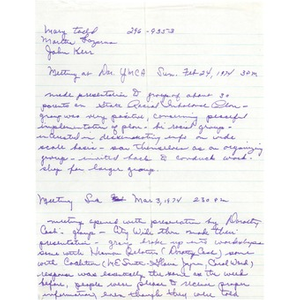 Mary Todd 296-9353
Martha
John Kerr
Meeting at Dor. YMCA Sun. Feb 24, 1974 3 PM
made presentation to group of about 30
parents on State Racial Imbalance Plan -
group was very positive, concerning peaceful
implementation of plan - bi racial group -
interested in disseminating info on wide
scale basis - saw themselves as an organizing
group - invited back to conduct work-
shop for larger group.
Meeting Sun. Mar 3, 1974 2:30 PM
- meeting opened with presentation by Dorothy
Cash's group - City Wide then made their
presentation - group broke up into workshops
some with ( Dorothy Cash) some
with Coalition
response was essentially the same as the week
before, people were pleased to receive proper
information, even though they were told